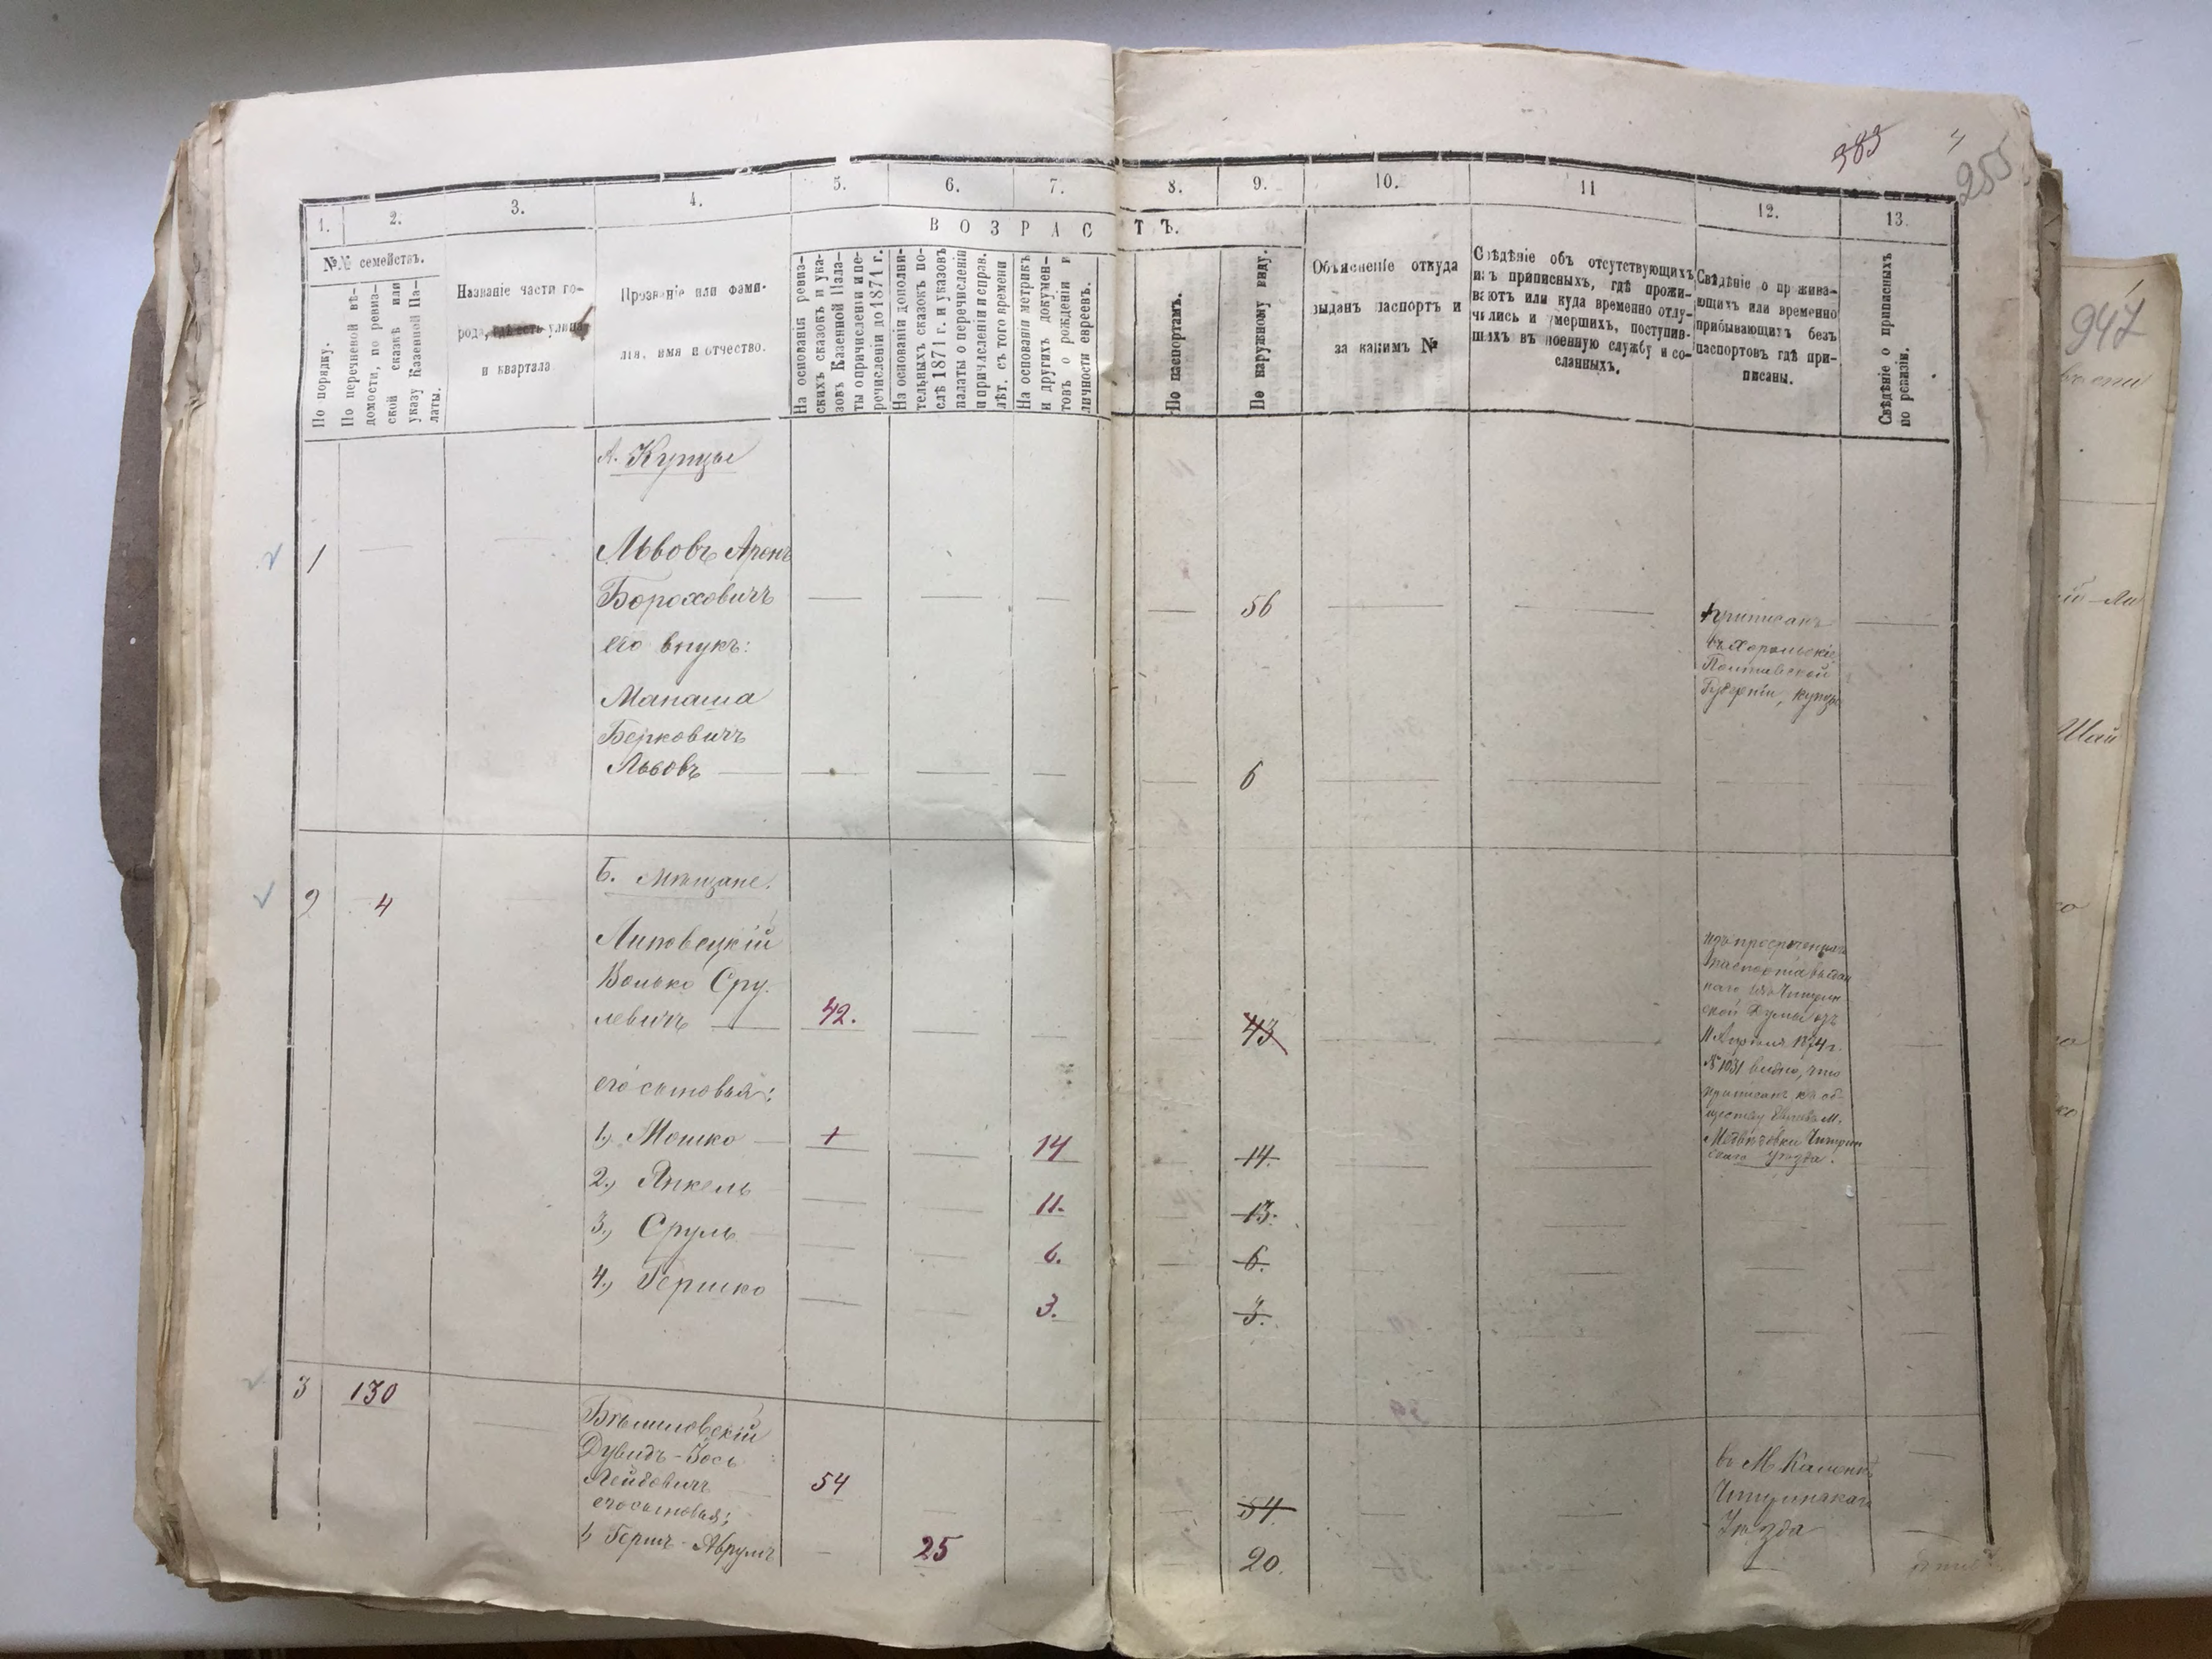 383
255
1.
2.
3.
4.
5.
6.
7.
8.
9.
10.
11
12.
13.
ВОЗРАСТЪ.
№№ семействъ.
По порядку.
По перечневой вѣ-
домости, по ревиз-
ской сказкѣ или
указу Казенной Па-
латы.
Названіе части го-
рода, гдѣ есть улица
и квартала
Прозваніе или фами-
лія, имя и отчество.
На основаніи ревиз-
скихъ сказокъ и ука-
зовъ Казенной Пала-
ты о причисленіи и пе-
речисленіи до 1871 г.
На основаніи дополни-
тельныхъ сказокъ по-
слѣ 1871 г. и указовъ
палаты о перечисленіи
и причисленіи и справ.
лѣт. съ того времени
На основаніи метрикъ
и другихъ докумен-
товъ о рожденіи и
личности евреевъ.
По паспортамъ.
По наружному виду.
Объясненіе откуда
выданъ паспортъ и
за какимъ №
Свѣдѣніе объ отсутствующихъ
изъ приписныхъ, гдѣ прожи-
ваютъ или куда временно отлу-
чились и умершихъ, поступив-
шихъ въ военную службу и со-
сланныхъ.
Свѣдѣніе о прожива-
ющихъ или временно
прибывающихъ безъ
паспортовъ гдѣ при-
писаны.
Свѣдѣніе о приписныхъ
по ревизіи.
А. Купцы
1
Львовъ Аронъ
Бороховичъ
56
его внукъ:
Манаша
Берковичъ
Львовъ
6
Приписанъ
въ Хорольскіе
Полтавской
Губерніи, купцы
Б. Мѣщане.
2
4
Липовецкій
Волько Сру-
левичъ
42.
43
его сыновья:
1) Мошко
+
14
14.
2) Янкель
11.
13.
3) Сруль
6.
6.
4) Гершко
3.
3.
изъ просроченнаго
паспорта выдан
наго изъ Чигрин
ской Думы отъ
11 Апрѣля 1874 г.
№ 1031 видно, что
приписанъ къ об-
ществу евреевъ М.
Медвѣдовки Чигрин
скаго уѣзда.
3
130
Бѣлиловскій
Дувидъ-Іось
Лейбовичъ
54
54.
его сыновья:
1) Гершъ-Аврумъ
25
20.
въ М. Каменкѣ
Чигринскаго
Уѣзда
947
Шай